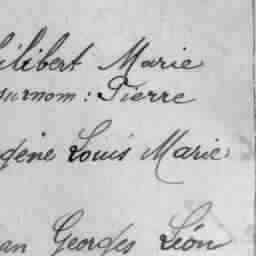 ilibert Marie
surnom : Pierre
gène Louis Marie
an Georges Léon